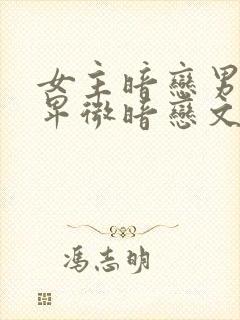 女主暗戀男
卑微暗戀文
馮志明